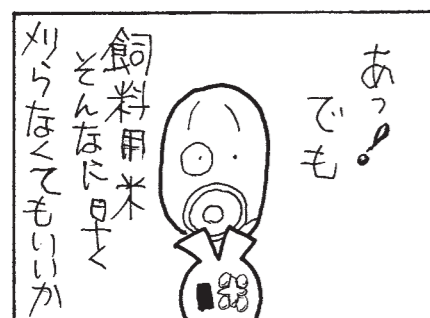 あっ!
でも
飼料用米
そんなに早く
刈らなくてもいいか